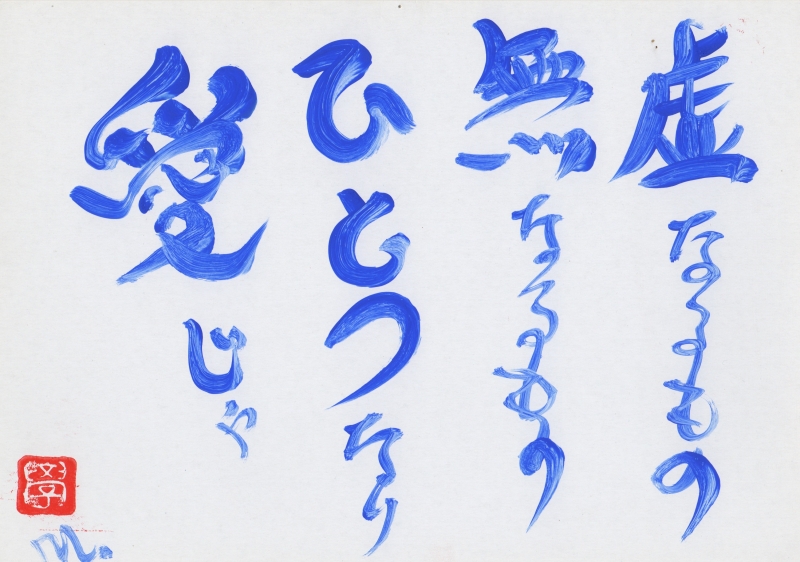 虚なるもの
無なるもの
ひとつなり
愛じゃ
學